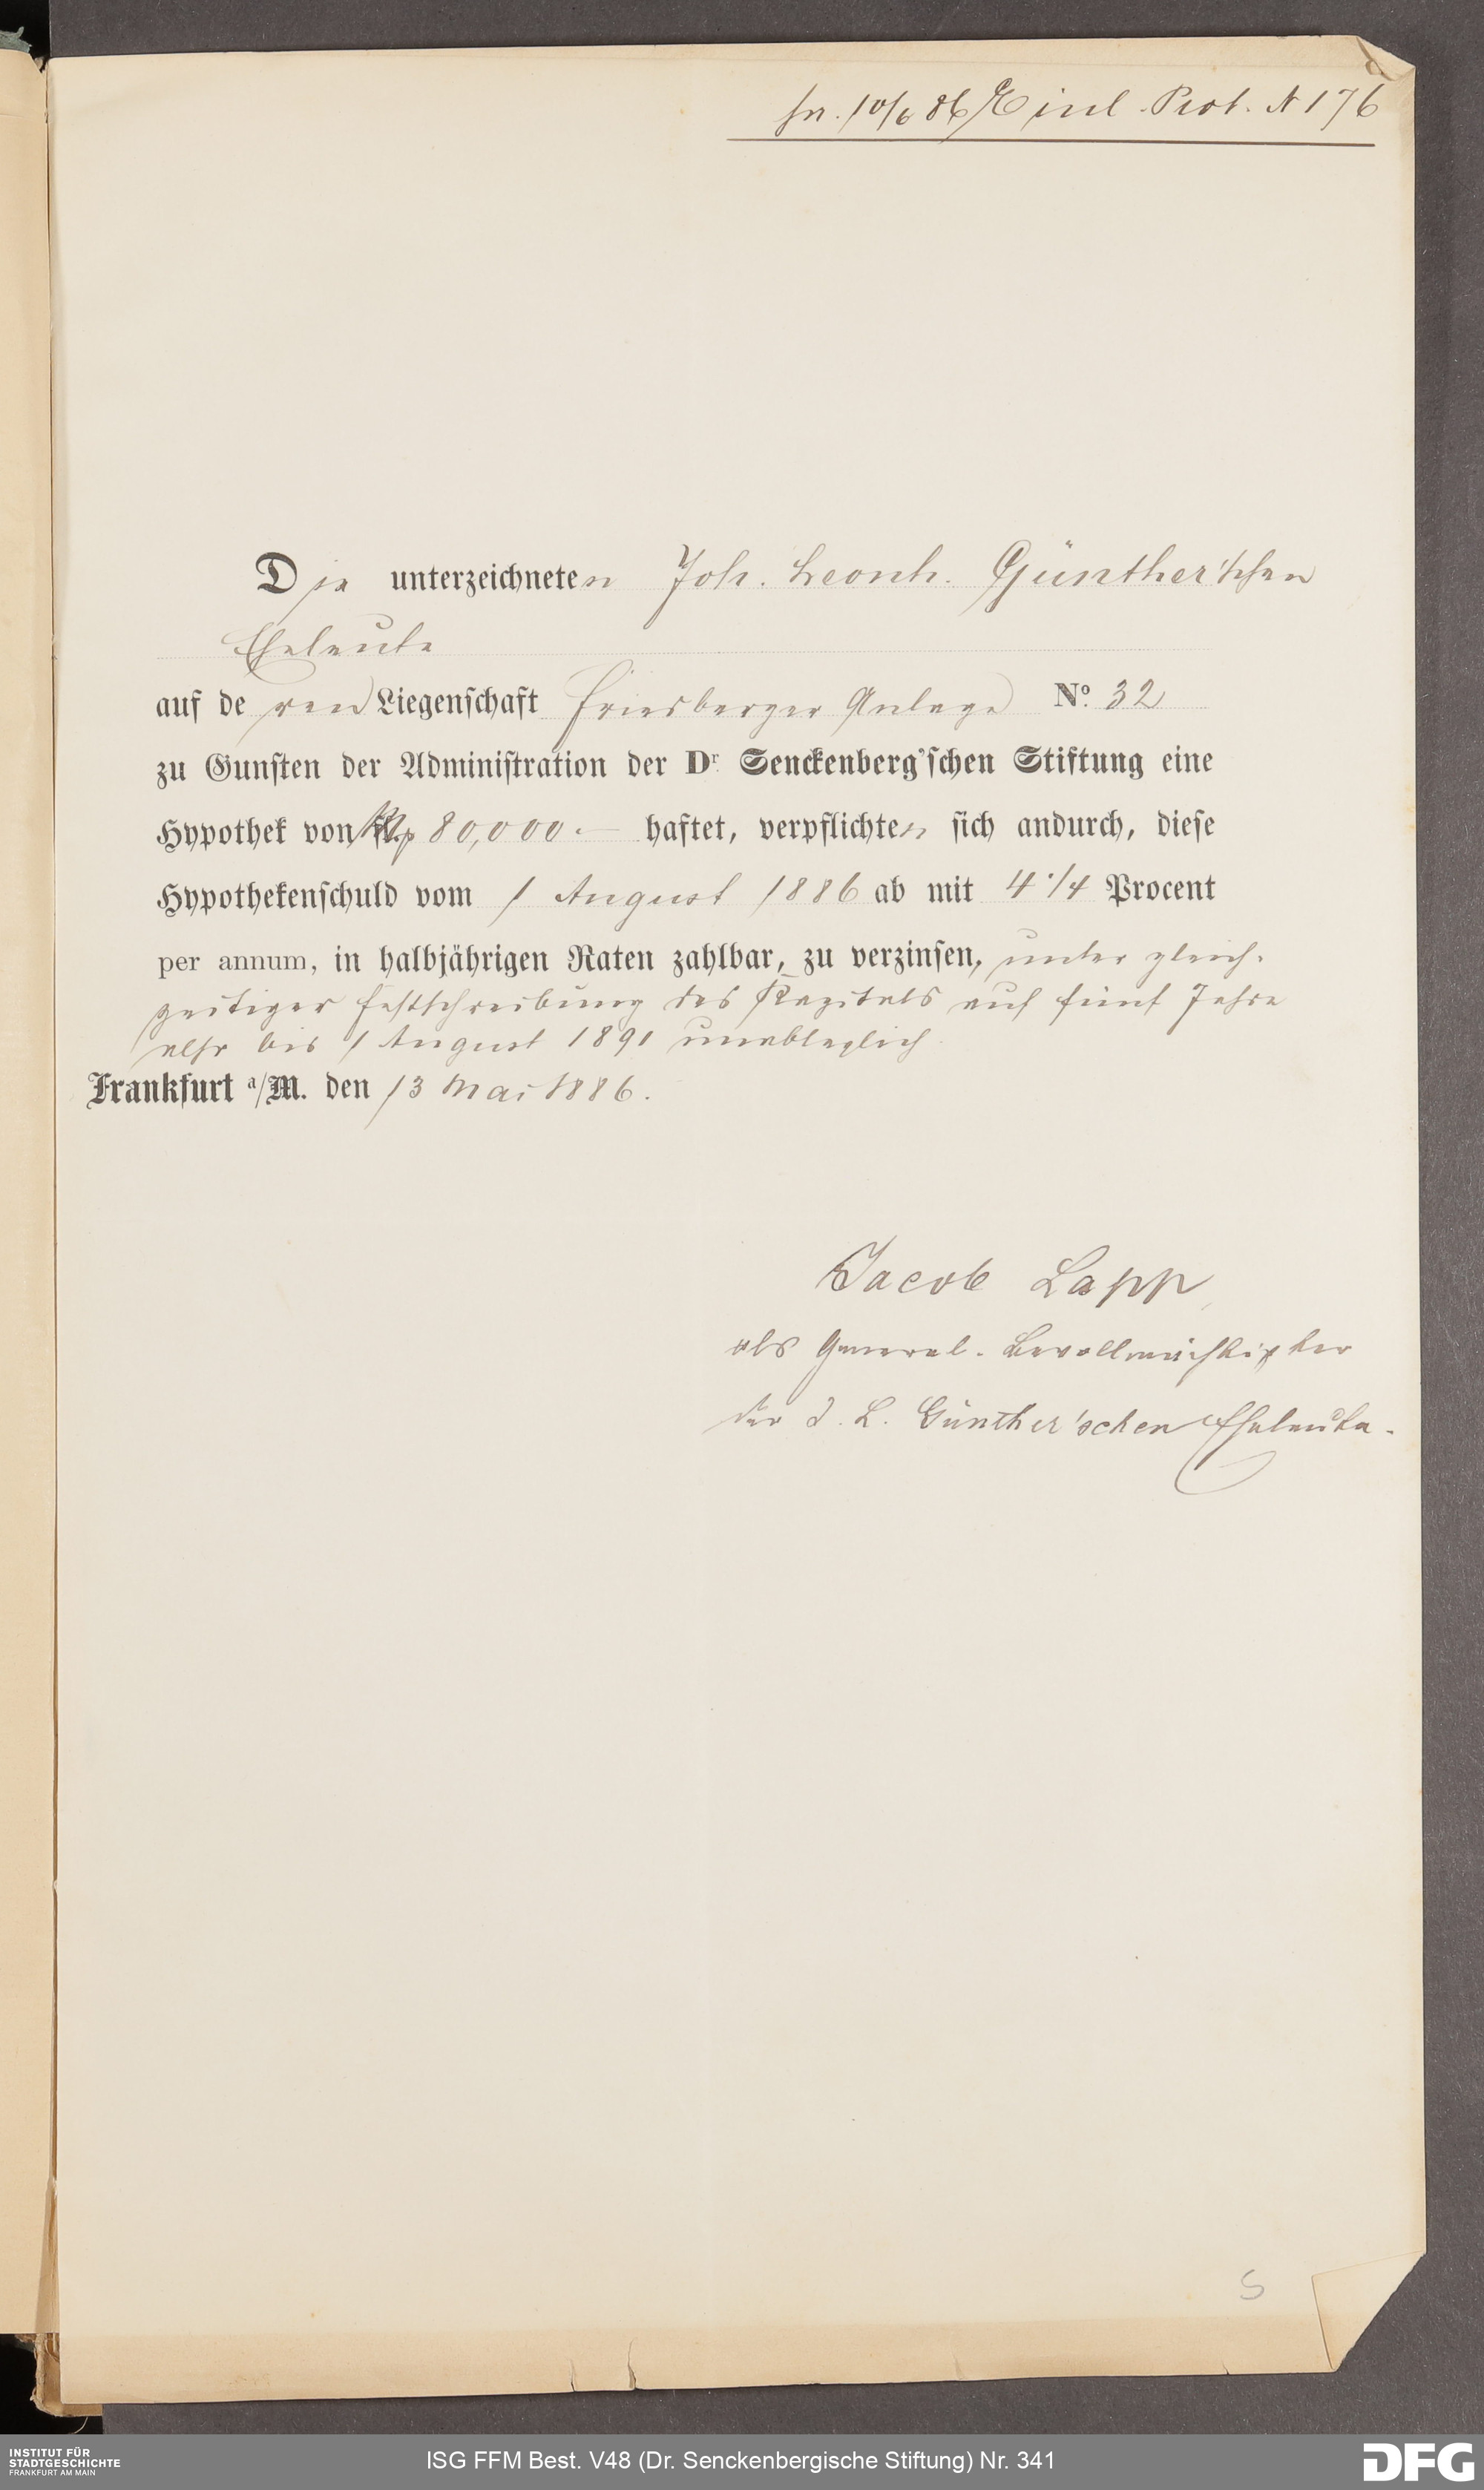 pr. 10/6 86 Einl. Prot. N 176
Die unterzeichneten Joh. Leonh. Günther'schen
Eheleute
auf deren Liegenschaft Friedberger Anlage No. 32
zu Gunſten der Adminiſtration der Dr. Senckenberg'ſchen Stiftung eine
Hypothek von 80,000.— haftet, verpflichten ſich andurch, dieſe
Hypothekenſchuld vom 1 August 1886 ab mit 4 1/4 Procent
per annum, in halbjährigen Raten zahlbar, zu verzinſen, unter gleich-
zeitiger Festschreibung des Kapitals auf fünf Jahre
also bis 1 August 1891 unableglich
Frankfurt a/M. den 13 Mai 1886.
Jacob Lapp
als General-Bevollmächtigter
der J. L. Günther'schen Eheleute.
5
INSTITUT FÜR
STADTGESCHICHTE
FRANKFURT AM MAIN
ISG FFM Best. V48 (Dr. Senckenbergische Stiftung) Nr. 341
DFG